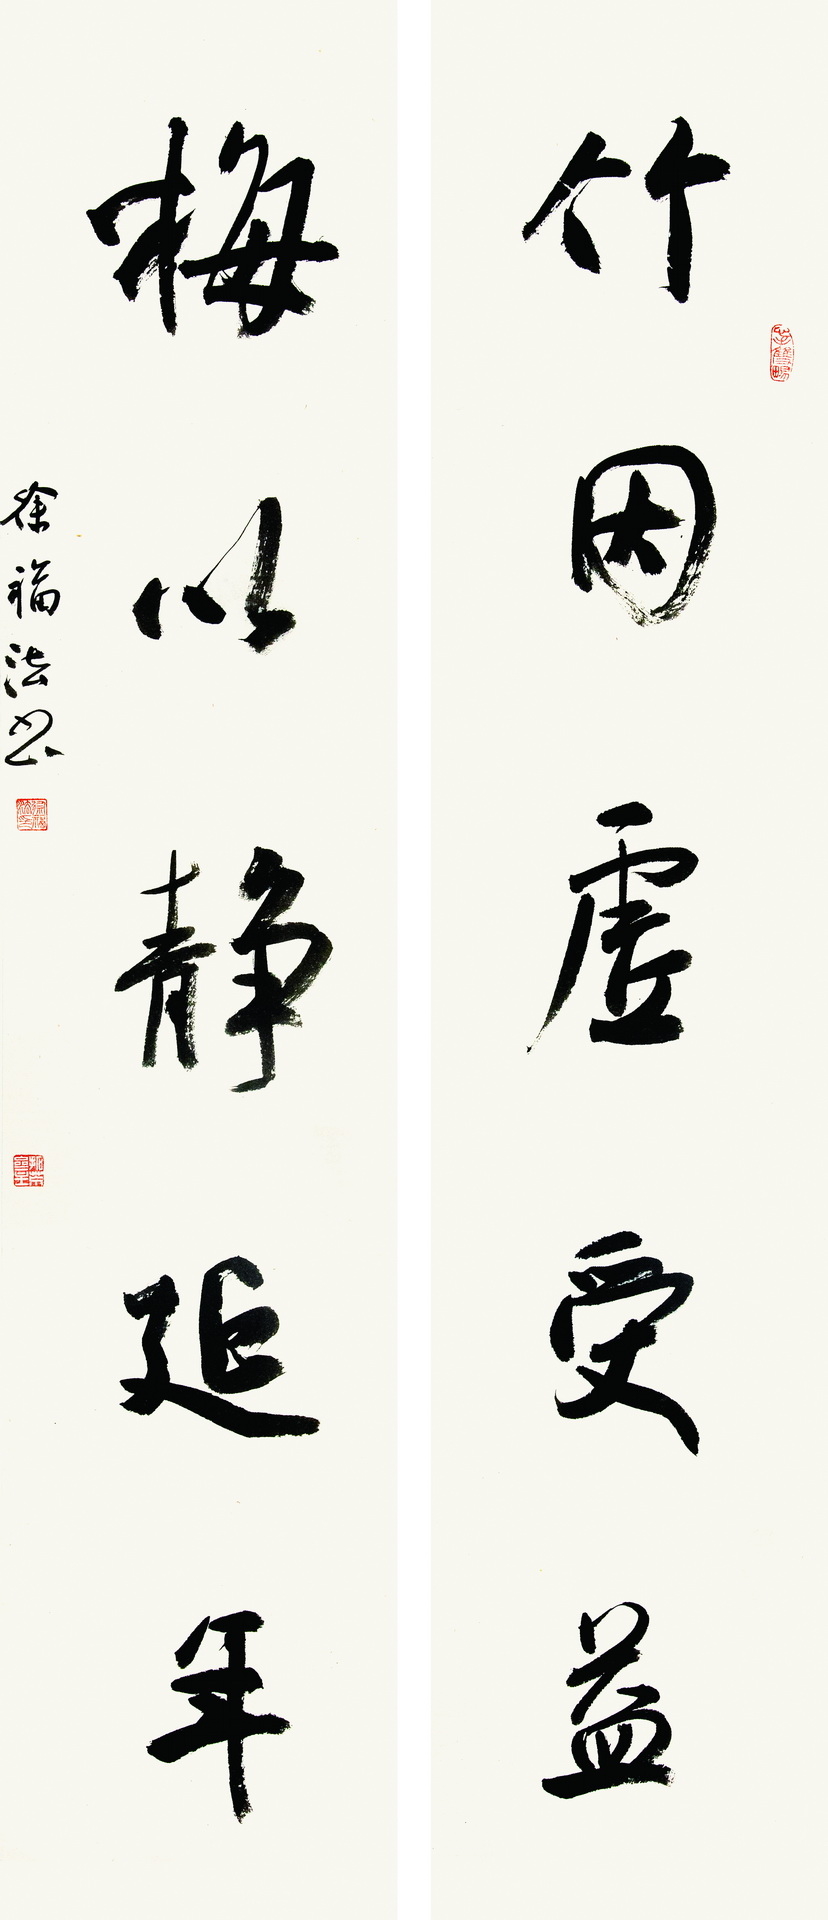 竹因虚受益
梅以静延年
徐福法书